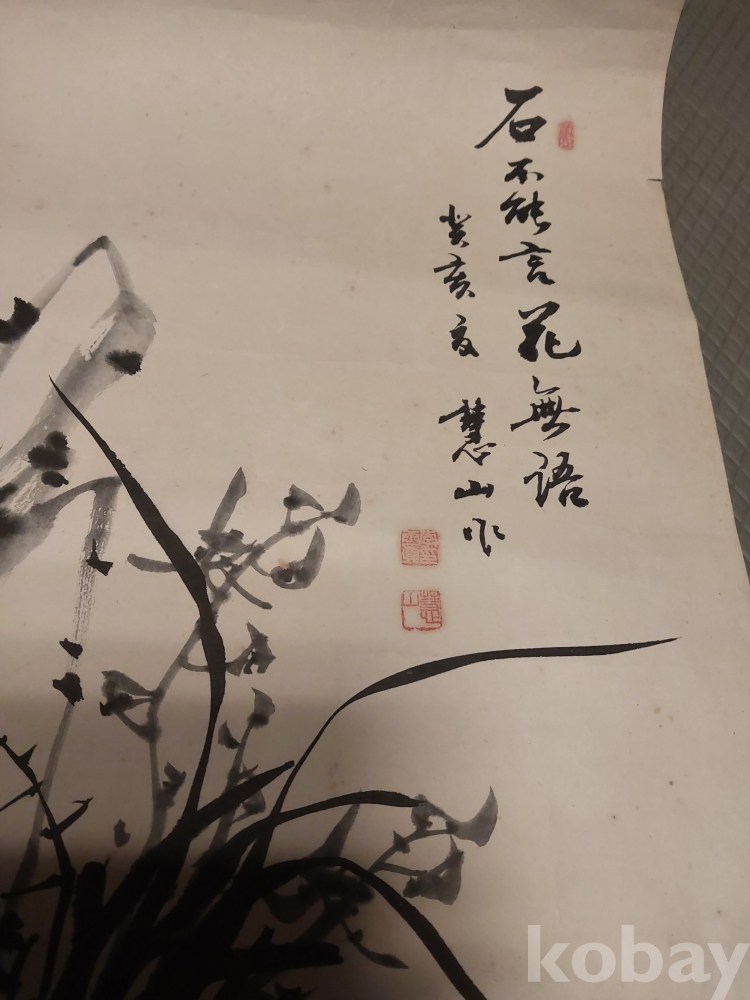 石不能言花無語
癸亥夏 慧山作
慧山
kobay